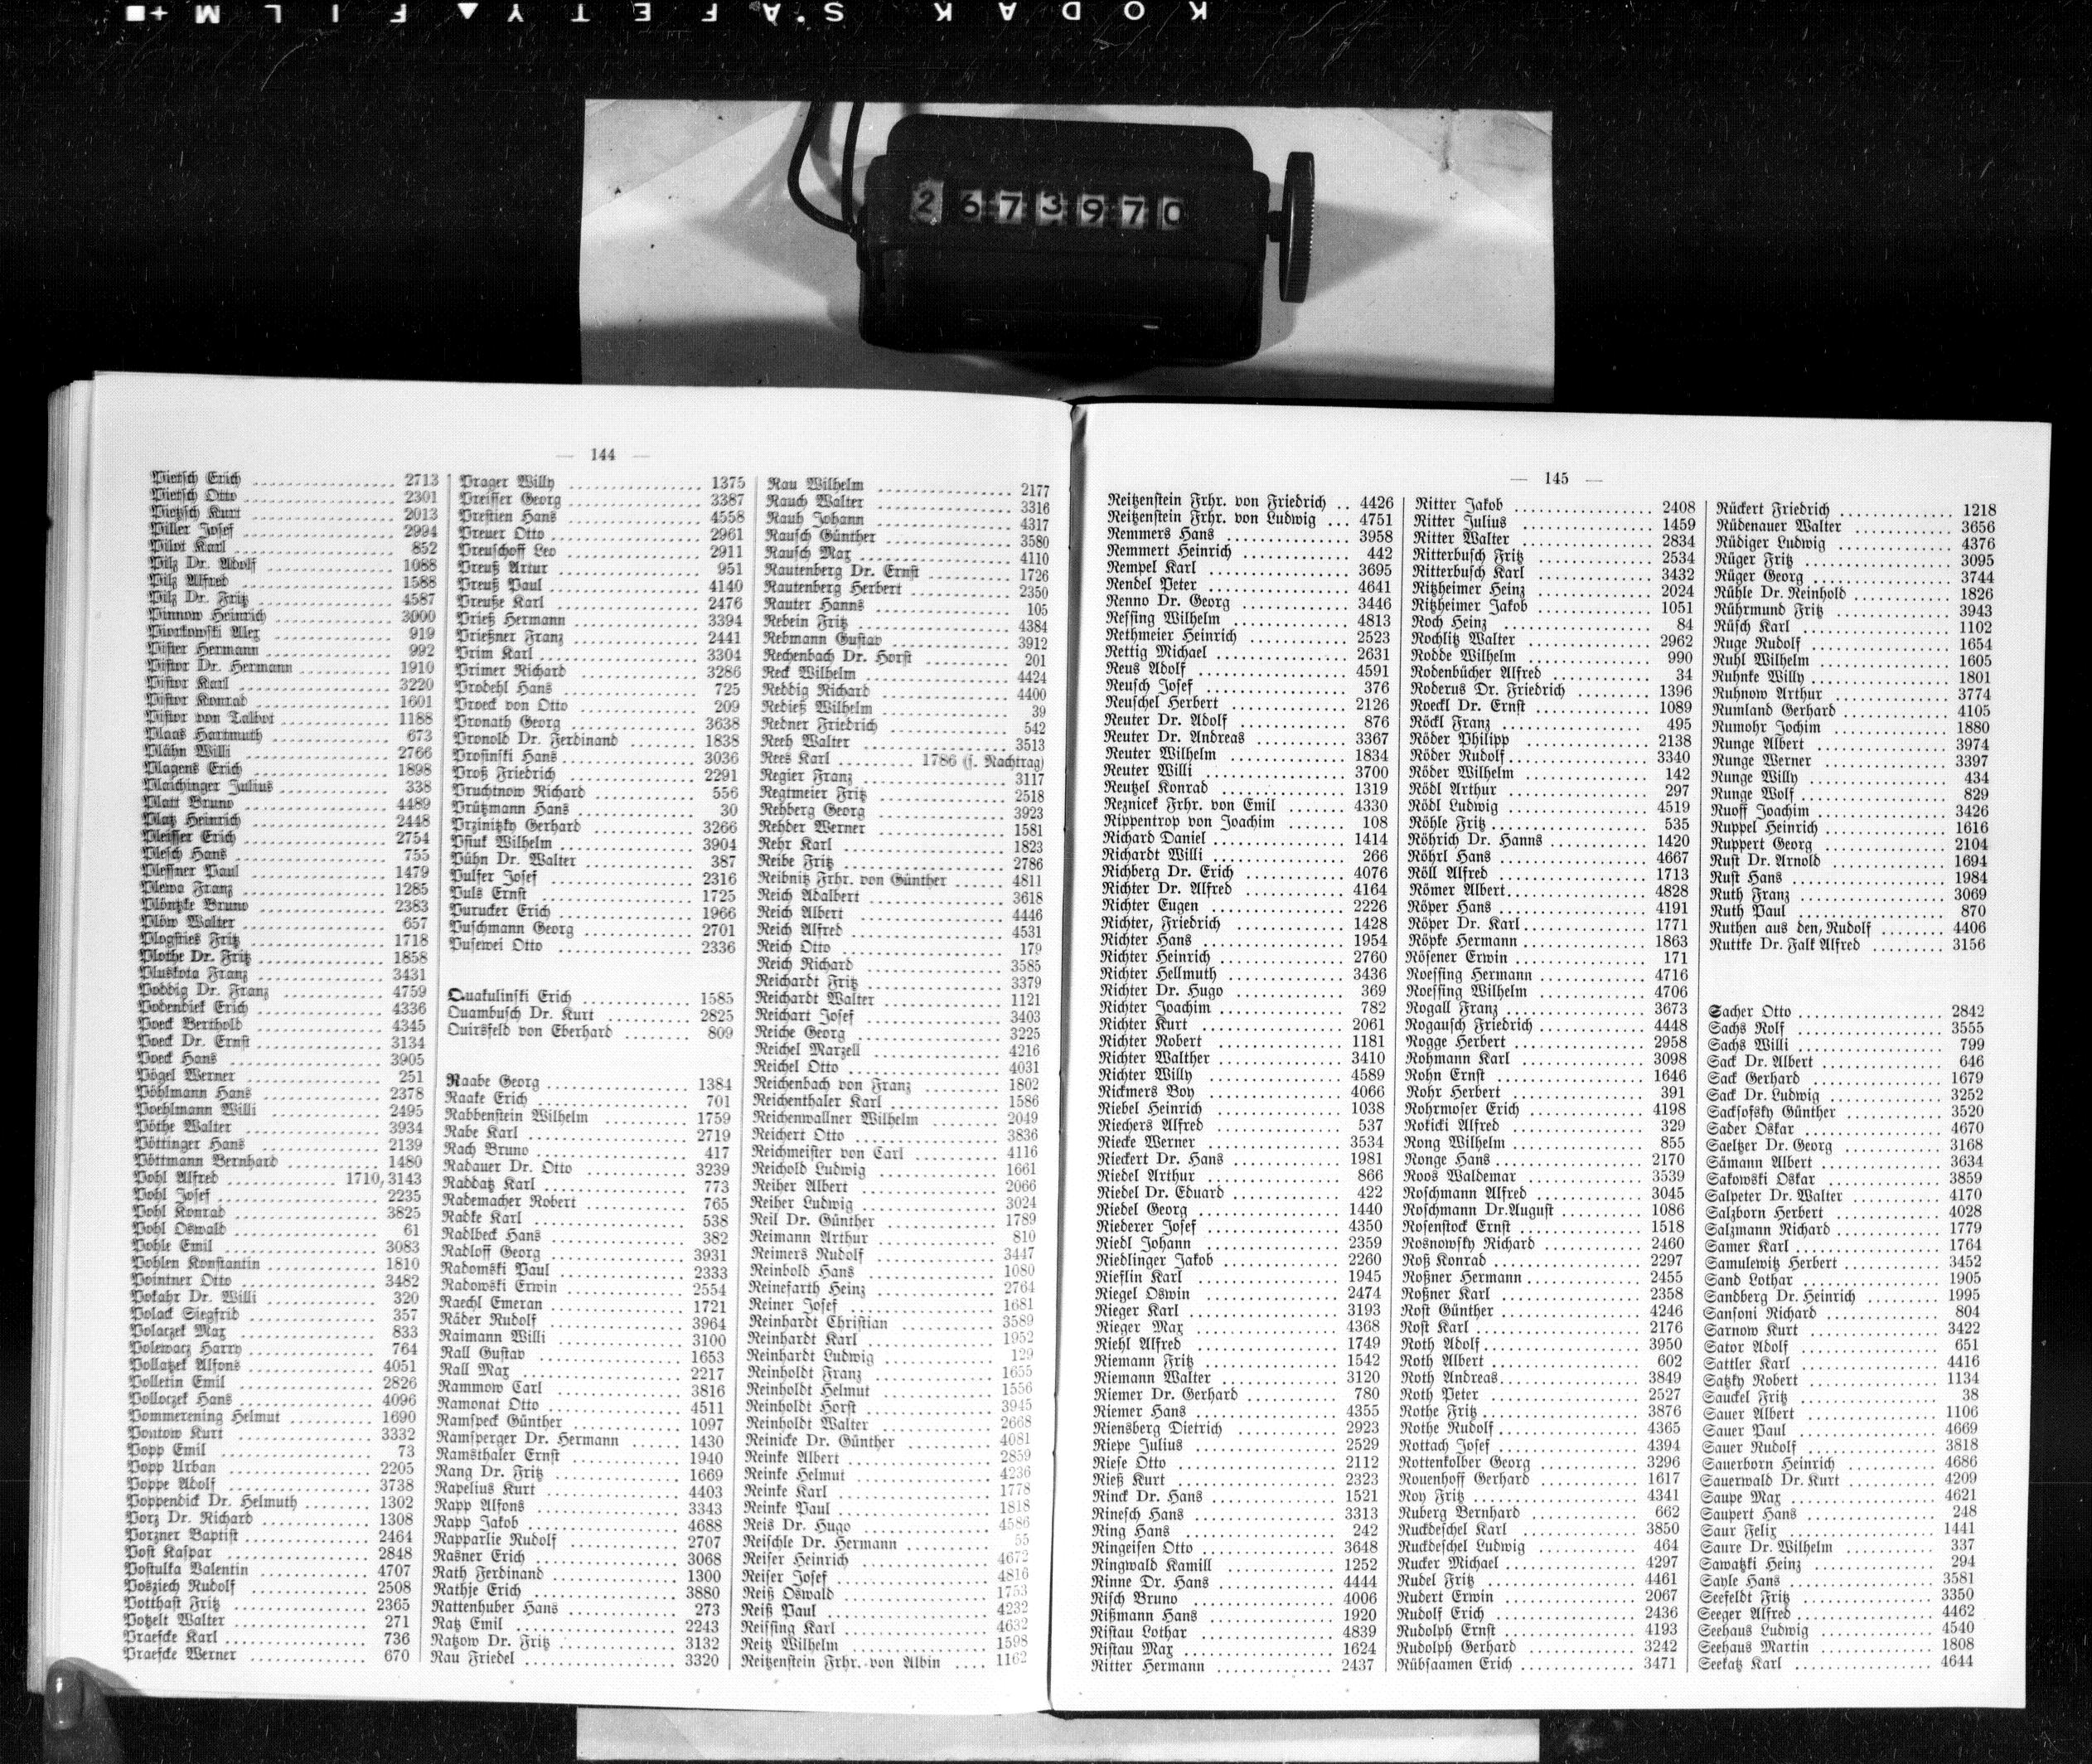 KODAK S.AFETY▲FILM+■
2673970
— 144 —
Pietsch Erich 2713
Pietsch Otto 2301
Pietzsch Kurt 2013
Piller Josef 2994
Pilot Karl 852
Pilz Dr. Adolf 1088
Pilz Alfred 1588
Pilz Dr. Fritz 4587
Pinnow Heinrich 3000
Piorkowski Alex 919
Pister Hermann 992
Pistor Dr. Hermann 1910
Pistor Karl 3220
Pistor Konrad 1601
Pistor von Talbot 1188
Plaas Hartmuth 673
Plähn Willi 2766
Plagens Erich 1898
Plaichinger Julius 338
Platt Bruno 4489
Platz Heinrich 2448
Pleisser Erich 2754
Plesch Hans 755
Plessner Paul 1479
Plewa Franz 1285
Plöntzke Bruno 2383
Plöw Walter 657
Plogsties Fritz 1718
Plothe Dr. Fritz 1858
Pluskota Franz 3431
Poddig Dr. Franz 4759
Podendiek Erich 4336
Poeck Berthold 4345
Poeck Dr. Ernst 3134
Poeck Hans 3905
Pögel Werner 251
Pöhlmann Hans 2378
Poehlmann Willi 2495
Pöthe Walter 3934
Pöttinger Hans 2139
Pöttmann Bernhard 1480
Pohl Alfred 1710, 3143
Pohl Josef 2235
Pohl Konrad 3825
Pohl Oswald 61
Pohle Emil 3083
Pohlen Konstantin 1810
Pointner Otto 3482
Pokahr Dr. Willi 320
Polack Siegfrid 357
Polaczek Max 833
Polewacz Harry 764
Pollatzek Alfons 4051
Polletin Emil 2826
Polloczek Hans 4096
Pommerening Helmut 1690
Pontow Kurt 3332
Popp Emil 73
Popp Urban 2205
Poppe Adolf 3738
Poppendick Dr. Helmuth 1302
Porz Dr. Richard 1308
Porzner Baptist 2464
Post Kaspar 2848
Postulka Valentin 4707
Posziech Rudolf 2508
Potthast Fritz 2365
Potzelt Walter 271
Praefcke Karl 736
Praefcke Werner 670
Prager Willy 1375
Preisser Georg 3387
Prestien Hans 4558
Preuer Otto 2961
Preuschoff Leo 2911
Preuß Artur 951
Preuß Paul 4140
Preuße Karl 2476
Prieß Hermann 3394
Prießner Franz 2441
Prim Karl 3304
Primer Richard 3286
Prodehl Hans 725
Proeck von Otto 209
Pronath Georg 3638
Pronold Dr. Ferdinand 1838
Prosinski Hans 3036
Proß Friedrich 2291
Pruchtnow Richard 556
Prützmann Hans 30
Przinitzky Gerhard 3266
Pstuk Wilhelm 3904
Pühn Dr. Walter 387
Pulfer Josef 2316
Puls Ernst 1725
Purucker Erich 1966
Puschmann Georg 2701
Pusewei Otto 2336
Quakulinski Erich 1585
Quambusch Dr. Kurt 2825
Quirsfeld von Eberhard 809
Raabe Georg 1384
Raake Erich 701
Rabbenstein Wilhelm 1759
Rabe Karl 2719
Rach Bruno 417
Radauer Dr. Otto 3239
Raddatz Karl 773
Rademacher Robert 765
Radke Karl 538
Radlbeck Hans 382
Radloff Georg 3931
Radomski Paul 2333
Radowski Erwin 2554
Raechl Emeran 1721
Räder Rudolf 3964
Raimann Willi 3100
Rall Gustav 1653
Rall Max 2217
Rammow Carl 3816
Ramonat Otto 4511
Ramspeck Günther 1097
Ramsperger Dr. Hermann 1430
Ramsthaler Ernst 1940
Rang Dr. Fritz 1669
Rapelius Kurt 4403
Rapp Alfons 3343
Rapp Jakob 4688
Rapparlie Rudolf 2707
Rasner Erich 3068
Rath Ferdinand 1300
Rathje Erich 3880
Rattenhuber Hans 273
Ratz Emil 2243
Ratzow Dr. Fritz 3132
Rau Friedel 3320
Rau Wilhelm 2177
Rauch Walter 3316
Rauh Johann 4317
Rausch Günther 3580
Rausch Max 4110
Rautenberg Dr. Ernst 1726
Rautenberg Herbert 2350
Rauter Hanns 105
Rebein Fritz 4384
Rebmann Gustav 3912
Rechenbach Dr. Horst 201
Reck Wilhelm 4424
Reddig Richard 4400
Redieß Wilhelm 39
Redner Friedrich 542
Reeh Walter 3513
Rees Karl 1786 (s. Nachtrag)
Regier Franz 3117
Regtmeier Fritz 2518
Rehberg Georg 3923
Rehder Werner 1581
Rehr Karl 1823
Reibe Fritz 2786
Reibnitz Frhr. von Günther 4811
Reich Adalbert 3618
Reich Albert 4446
Reich Alfred 4531
Reich Otto 179
Reich Richard 3585
Reichardt Fritz 3379
Reichardt Walter 1121
Reichart Josef 3403
Reiche Georg 3225
Reichel Marzell 4216
Reichel Otto 4031
Reichenbach von Franz 1802
Reichenthaler Karl 1586
Reichenwallner Wilhelm 2049
Reichert Otto 3836
Reichmeister von Carl 4116
Reichold Ludwig 1661
Reiher Albert 2066
Reiher Ludwig 3024
Reil Dr. Günther 1789
Reimann Arthur 810
Reimers Rudolf 3447
Reinbold Hans 1080
Reinefarth Heinz 2764
Reiner Josef 1681
Reinhardt Christian 3589
Reinhardt Karl 1952
Reinhardt Ludwig 129
Reinholdt Franz 1655
Reinholdt Helmut 1556
Reinholdt Horst 3945
Reinholdt Walter 2668
Reinicke Dr. Günther 4081
Reinke Albert 2859
Reinke Helmut 4236
Reinke Karl 1778
Reinke Paul 1818
Reis Dr. Hugo 4586
Reischle Dr. Hermann 55
Reiser Heinrich 4672
Reiser Josef 4816
Reiß Oswald 1753
Reiß Paul 4232
Reissing Karl 4632
Reitz Wilhelm 1598
Reitzenstein Frhr. von Albin 1162
— 145 —
Reitzenstein Frhr. von Friedrich 4426
Reitzenstein Frhr. von Ludwig 4751
Remmers Hans 3958
Remmert Heinrich 442
Rempel Karl 3695
Rendel Peter 4641
Renno Dr. Georg 3446
Ressing Wilhelm 4813
Rethmeier Heinrich 2523
Rettig Michael 2631
Reus Adolf 4591
Reusch Josef 376
Reuschel Herbert 2126
Reuter Dr. Adolf 876
Reuter Dr. Andreas 3367
Reuter Wilhelm 1834
Reuter Willi 3700
Reutzel Konrad 1319
Reznicek Frhr. von Emil 4330
Rippentrop von Joachim 108
Richard Daniel 1414
Richardt Willi 266
Richberg Dr. Erich 4076
Richter Dr. Alfred 4164
Richter Eugen 2226
Richter, Friedrich 1428
Richter Hans 1954
Richter Heinrich 2760
Richter Hellmuth 3436
Richter Dr. Hugo 369
Richter Joachim 782
Richter Kurt 2061
Richter Robert 1181
Richter Walther 3410
Richter Willy 4589
Rickmers Boy 4066
Riebel Heinrich 1038
Riechers Alfred 537
Riecke Werner 3534
Rieckert Dr. Hans 1981
Riedel Arthur 866
Riedel Dr. Eduard 422
Riedel Georg 1440
Riederer Josef 4350
Riedl Johann 2359
Riedlinger Jakob 2260
Rieflin Karl 1945
Riegel Oswin 2474
Rieger Karl 3193
Rieger Max 4368
Riehl Alfred 1749
Riemann Fritz 1542
Riemann Walter 3120
Riemer Dr. Gerhard 780
Riemer Hans 4355
Riensberg Dietrich 2923
Riepe Julius 2529
Riese Otto 2112
Rieß Kurt 2323
Rinck Dr. Hans 1521
Rinesch Hans 3313
Ring Hans 242
Ringeisen Otto 3648
Ringwald Kamill 1252
Rinne Dr. Hans 4444
Risch Bruno 4006
Rißmann Hans 1920
Ristau Lothar 4839
Ristau Max 1624
Ritter Hermann 2437
Ritter Jakob 2408
Ritter Julius 1459
Ritter Walter 2834
Ritterbusch Fritz 2534
Ritterbusch Karl 3432
Ritzheimer Heinz 2024
Ritzheimer Jakob 1051
Roch Heinz 84
Rochlitz Walter 2962
Rodde Wilhelm 990
Rodenbücher Alfred 34
Roderus Dr. Friedrich 1396
Roeckl Dr. Ernst 1089
Röckl Franz 495
Röder Philipp 2138
Röder Rudolf 3340
Röder Wilhelm 142
Rödl Arthur 297
Rödl Ludwig 4519
Röhle Fritz 535
Röhrich Dr. Hanns 1420
Röhrl Hans 4667
Röll Alfred 1713
Römer Albert 4828
Röper Hans 4191
Röper Dr. Karl 1771
Röpke Hermann 1863
Rösener Erwin 171
Roessing Hermann 4716
Roessing Wilhelm 4706
Rogall Franz 3673
Rogausch Friedrich 4448
Rogge Herbert 2958
Rohmann Karl 3098
Rohn Ernst 1646
Rohr Herbert 391
Rohrmoser Erich 4198
Rokicki Alfred 329
Rong Wilhelm 855
Ronge Hans 2170
Roos Waldemar 3539
Roschmann Alfred 3045
Roschmann Dr. August 1086
Rosenstock Ernst 1518
Rosnowsky Richard 2460
Roß Konrad 2297
Roßner Hermann 2455
Roßner Karl 2358
Rost Günther 4246
Rost Karl 2176
Roth Adolf 3950
Roth Albert 602
Roth Andreas 3849
Roth Peter 2527
Rothe Fritz 3876
Rothe Rudolf 4365
Rottach Josef 4394
Rottenkolber Georg 3296
Rouenhoff Gerhard 1617
Roy Fritz 4341
Ruberg Bernhard 662
Ruckdeschel Karl 3850
Ruckdeschel Ludwig 464
Rucker Michael 4297
Rudel Fritz 4461
Rudert Erwin 2067
Rudolf Erich 2436
Rudolph Ernst 4193
Rudolph Gerhard 3242
Rübsaamen Erich 3471
Rückert Friedrich 1218
Rüdenauer Walter 3656
Rüdiger Ludwig 4376
Rüger Fritz 3095
Rüger Georg 3744
Rühle Dr. Reinhold 1826
Rührmund Fritz 3943
Rüsch Karl 1102
Ruge Rudolf 1654
Ruhl Wilhelm 1605
Ruhnke Willy 1801
Ruhnow Arthur 3774
Rumland Gerhard 4105
Rumohr Jochim 1880
Runge Albert 3974
Runge Werner 3397
Runge Willy 434
Runge Wolf 829
Ruoff Joachim 3426
Ruppel Heinrich 1616
Ruppert Georg 2104
Rust Dr. Arnold 1694
Rust Hans 1984
Ruth Franz 3069
Ruth Paul 870
Ruthen aus den, Rudolf 4406
Ruttke Dr. Falk Alfred 3156
Sacher Otto 2842
Sachs Rolf 3555
Sachs Willi 799
Sack Dr. Albert 646
Sack Gerhard 1679
Sack Dr. Ludwig 3252
Sacksofsky Günther 3520
Sader Oskar 4670
Saeltzer Dr. Georg 3168
Sämann Albert 3634
Sakowski Oskar 3859
Salpeter Dr. Walter 4170
Salzborn Herbert 4028
Salzmann Richard 1779
Samer Karl 1764
Samulewitz Herbert 3452
Sand Lothar 1905
Sandberg Dr. Heinrich 1995
Sansoni Richard 804
Sarnow Kurt 3422
Sator Adolf 651
Sattler Karl 4416
Satzky Robert 1134
Sauckel Fritz 38
Sauer Albert 1106
Sauer Paul 4669
Sauer Rudolf 3818
Sauerborn Heinrich 4686
Sauerwald Dr. Kurt 4209
Saupe Max 4621
Saupert Hans 248
Saur Felix 1441
Saure Dr. Wilhelm 337
Sawatzki Heinz 294
Sayle Hans 3581
Seefeldt Fritz 3350
Seeger Alfred 4462
Seehaus Ludwig 4540
Seehaus Martin 1808
Seekatz Karl 4644